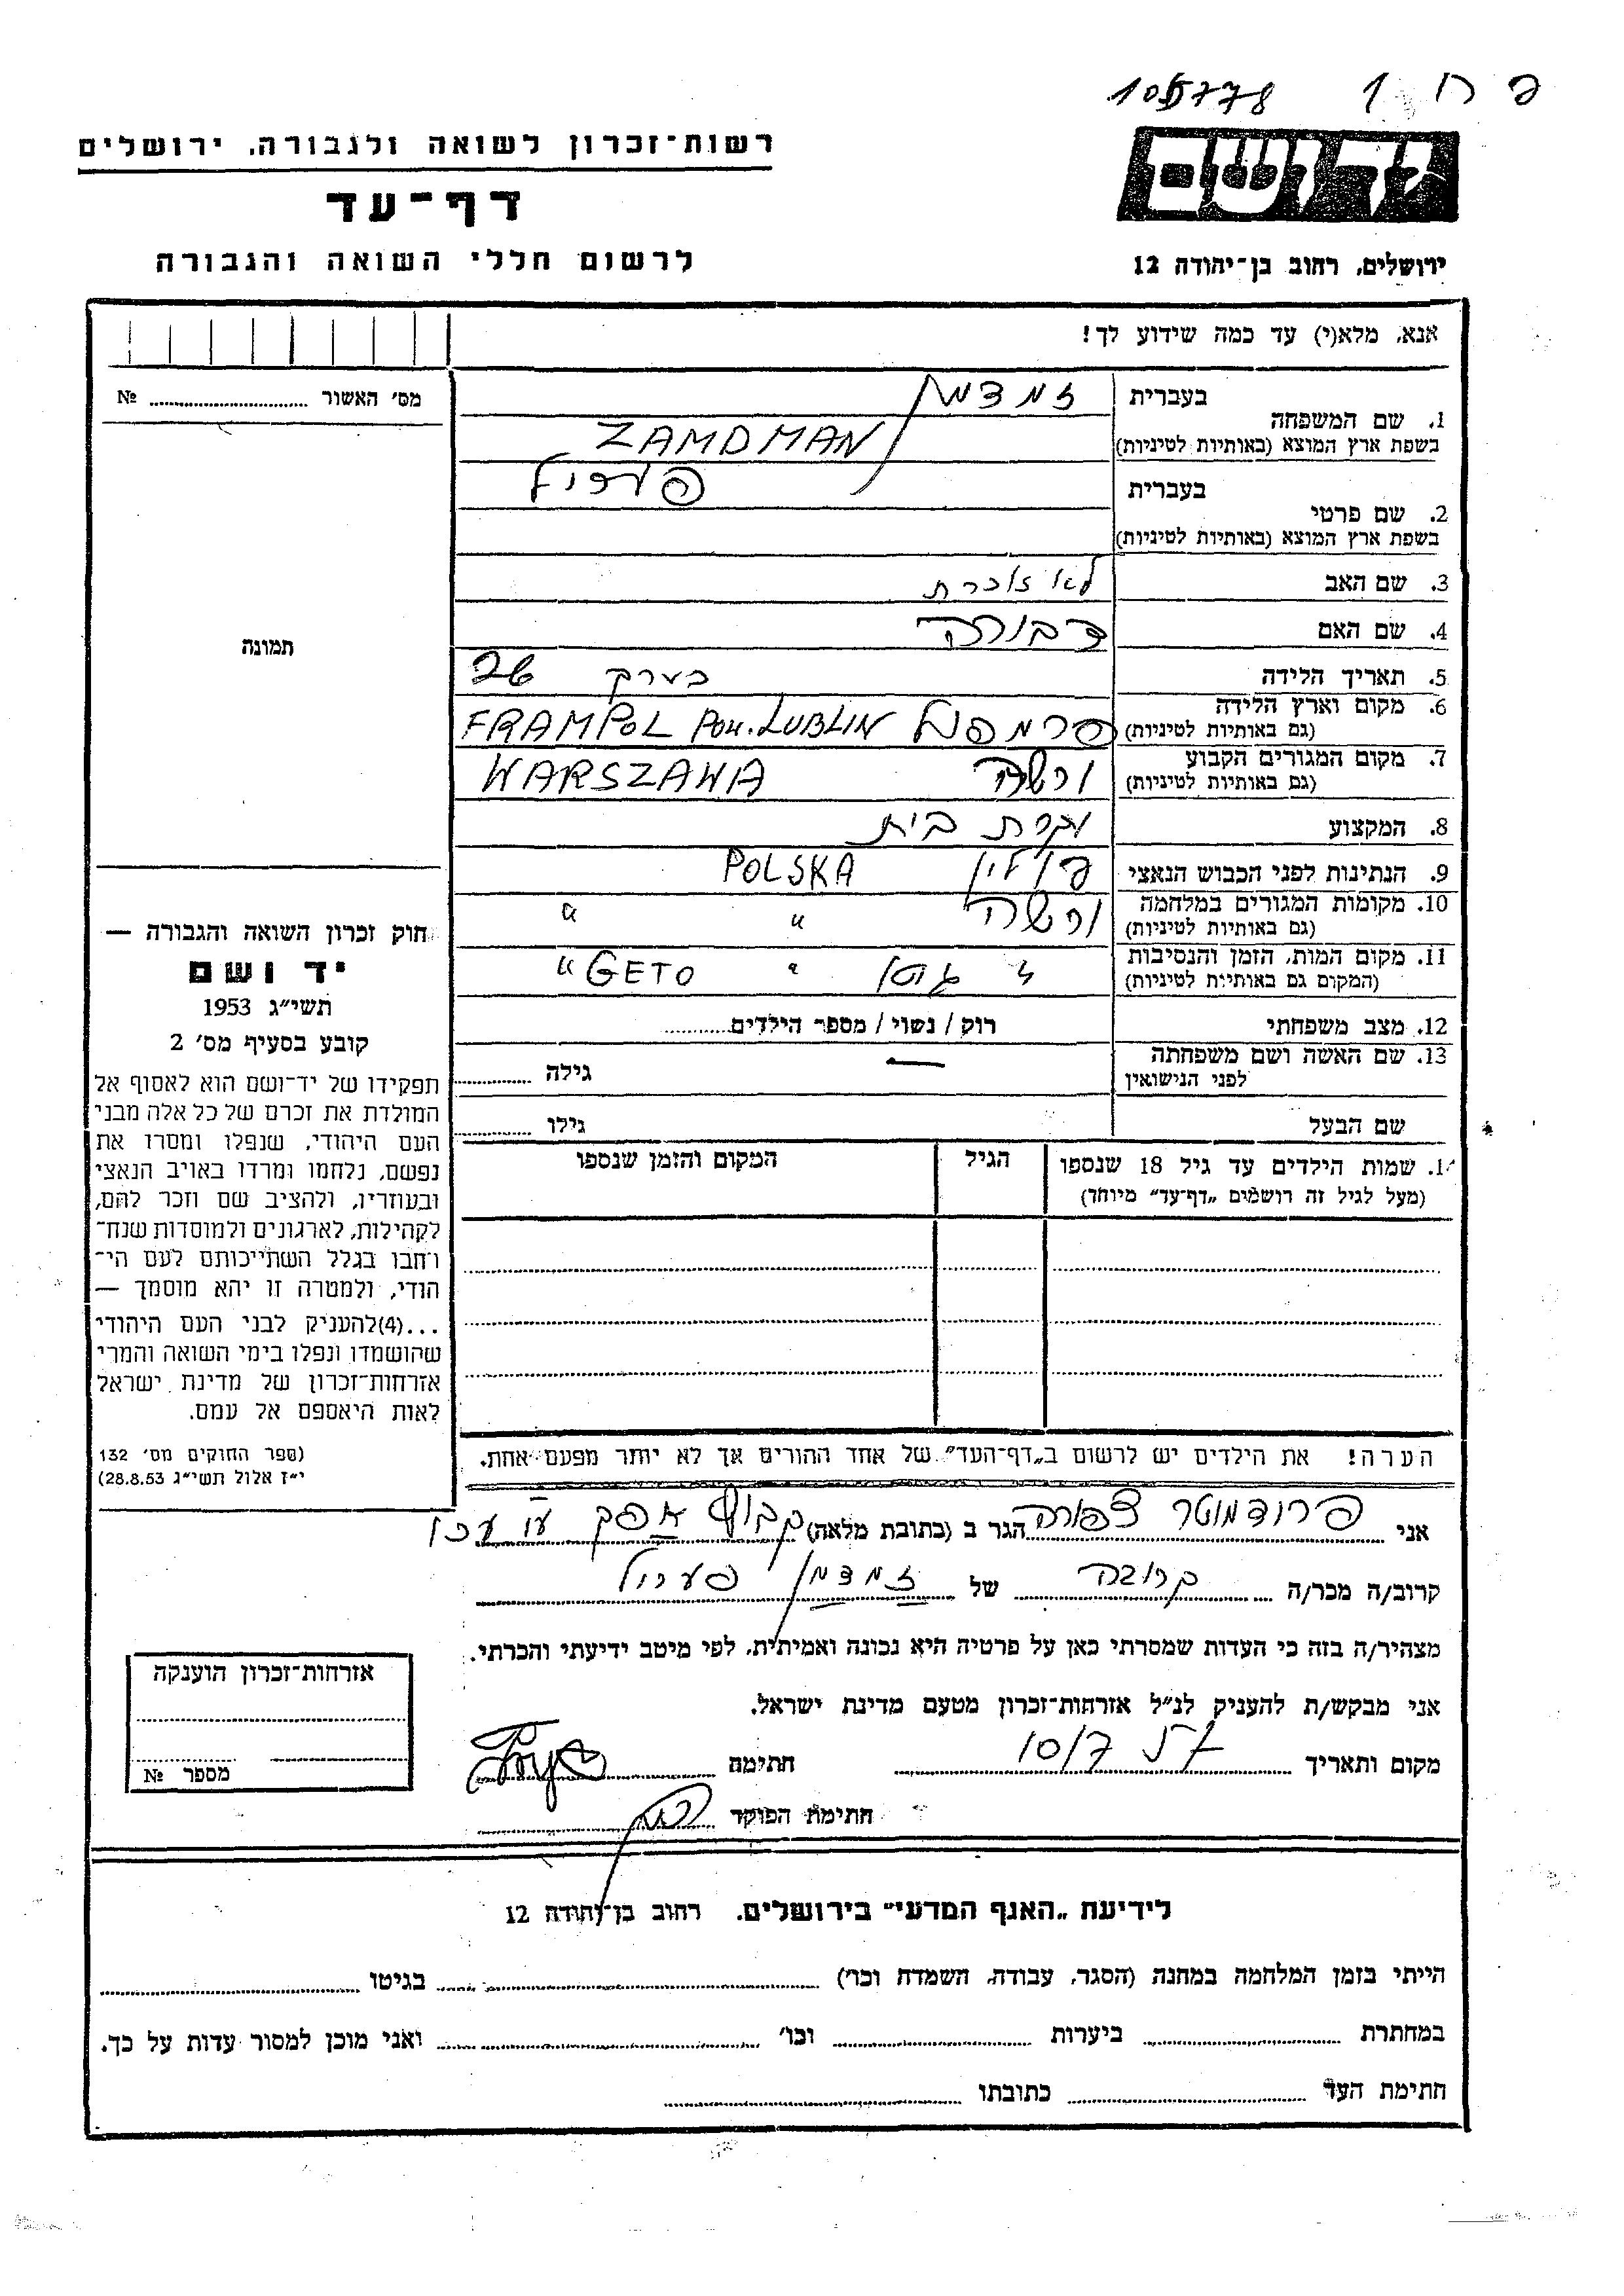 105778 1 פ ח
יד ושם
רשות־זכרון לשואה ולגבורה, ירושלים
דף־עד
לרשום חללי השואה והגבורה
ירושלים, רחוב בן־יהודה 12
אנא, מלא(י) עד כמה שידוע לך!
מס׳ האשור № ..........
1. שם המשפחה
בעברית זמדמן
בשפת ארץ המוצא (באותיות לטיניות) ZAMDMAN
2. שם פרטי
בעברית
בשפת ארץ המוצא (באותיות לטיניות)
3. שם האב לא זוכרת
4. שם האם דבורה
5. תאריך הלידה בערך
6. מקום וארץ הלידה פרמפול FRAMPOL POW. LUBLIN
(גם באותיות לטיניות)
7. מקום המגורים הקבוע ורשה WARSZAWA
(גם באותיות לטיניות)
8. המקצוע עקרת בית
9. הנתינות לפני הכבוש הנאצי פולין POLSKA
10. מקומות המגורים במלחמה ורשה " "
(גם באותיות לטיניות)
11. מקום המות, הזמן והנסיבות " גטו " GETO "
(המקום גם באותיות לטיניות)
12. מצב משפחתי רוק / נשוי / מספר הילדים..........
13. שם האשה ושם משפחתה — גילה ..........
לפני הנישואין
שם הבעל גילו ..........
14. שמות הילדים עד גיל 18 שנספו הגיל המקום והזמן שנספו
(מעל לגיל זה רושמים „דף־עד״ מיוחד)
הערה! את הילדים יש לרשום ב„דף־העד״ של אחד ההורים אך לא יותר מפעם אחת.
תמונה
חוק זכרון השואה והגבורה —
יד ושם
תשי״ג 1953
קובע בסעיף מס׳ 2
תפקידו של יד־ושם הוא לאסוף אל
המולדת את זכרם של כל אלה מבני
העם היהודי, שנפלו ומסרו את
נפשם, נלחמו ומרדו באויב הנאצי
ובעוזריו, ולהציב שם וזכר להם,
לקהילות, לארגונים ולמוסדות שנח־
רחבו בגלל השתייכותם לעם הי־
הודי, ולמטרה זו יהא מוסמך —
...(4)להעניק לבני העם היהודי
שהושמדו ונפלו בימי השואה והמרי
אזרחות־זכרון של מדינת ישראל
לאות היאספם אל עמם.
(ספר החוקים מס׳ 132
י״ז אלול תשי״ג 28.8.53)
אני פרודמוטר צפורה הגר ב (כתובת מלאה) קבוץ אפק עו עכו
קרוב/ה מכר/ה קרובה של זמדמן
מצהיר/ה בזה כי העדות שמסרתי כאן על פרטיה היא נכונה ואמיתית, לפי מיטב ידיעתי והכרתי.
אני מבקש/ת להעניק לנ״ל אזרחות־זכרון מטעם מדינת ישראל.
מקום ותאריך 10/7 חתימה
חתימת הפוקד
אזרחות־זכרון הוענקה
מספר №
לידיעת „האגף המדעי״ בירושלים, רחוב בן־יהודה 12
הייתי בזמן המלחמה במחנה (הסגר, עבודה, השמדה וכו׳) .......... בגיטו ..........
במחתרת .......... ביערות .......... וכו׳ .......... ואני מוכן למסור עדות על כך.
חתימת העד .......... כתובתו ..........